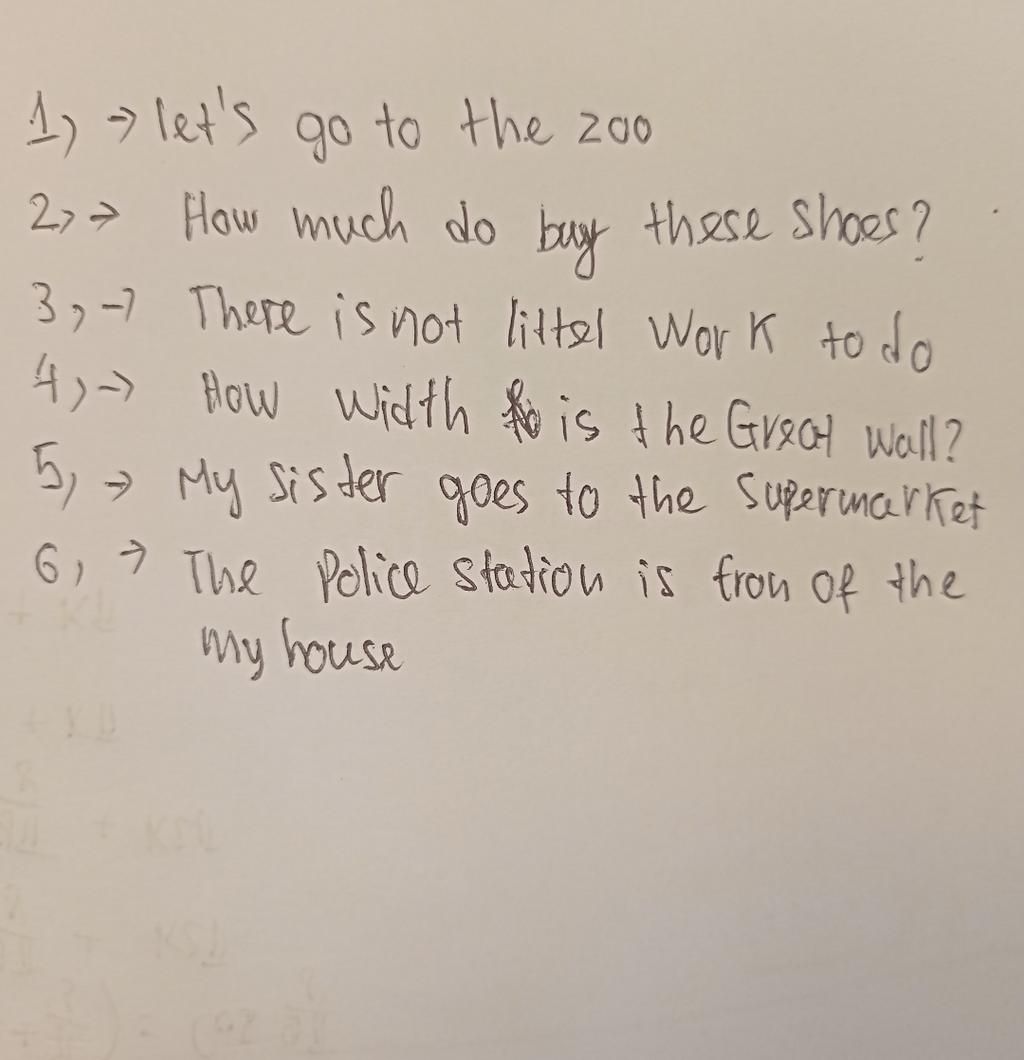 1) → let's go to the zoo
2) → How much do buy these shoes?
3) → There is not littel work to do
4) → How width is the Great wall?
5) → My sister goes to the supermarket
6) → The Police station is fron of the
my house